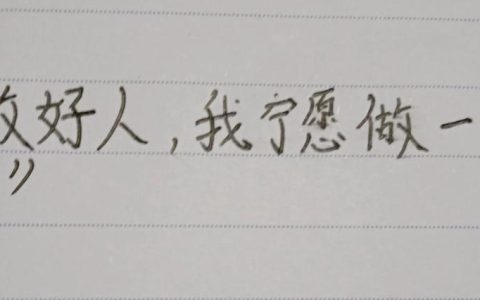 好人，我宁愿做一
”